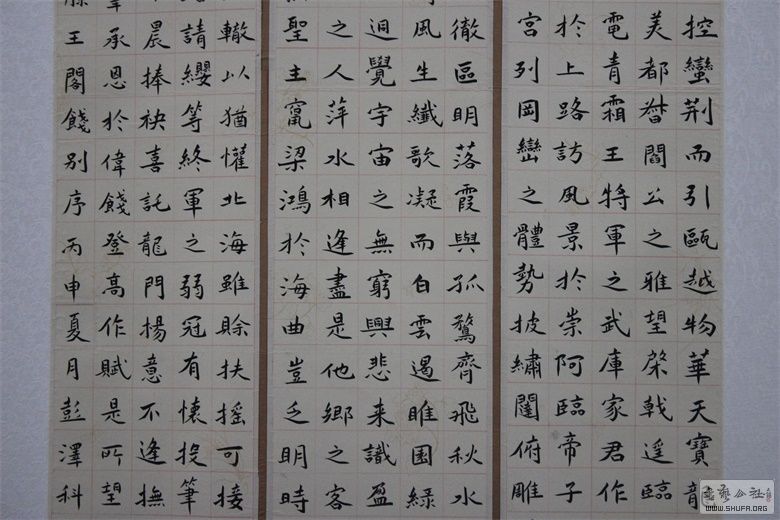 控蠻荆而引甌越物華天寶龍
美都督閻公之雅望棨戟遥臨
電青霜王將軍之武庫家君作
於上路訪風景於崇阿臨帝子
宮列岡巒之體勢披繡闥俯雕
徹區明落霞與孤鶩齊飛秋水
風生纖歌凝而白雲遏睢園緑
迥覺宇宙之無窮興悲来識盈
之人萍水相逢盡是他鄉之客
聖主竄梁鴻於海曲豈乏明時
轍以猶懽北海雖賒扶摇可接
請纓等終軍之弱冠有懷投筆
晨捧袂喜託龍門楊意不逢撫
承恩於偉餞登高作賦是所望
王閣餞別序丙申夏月彭澤科
公社
WWW.SHUFA.ORG